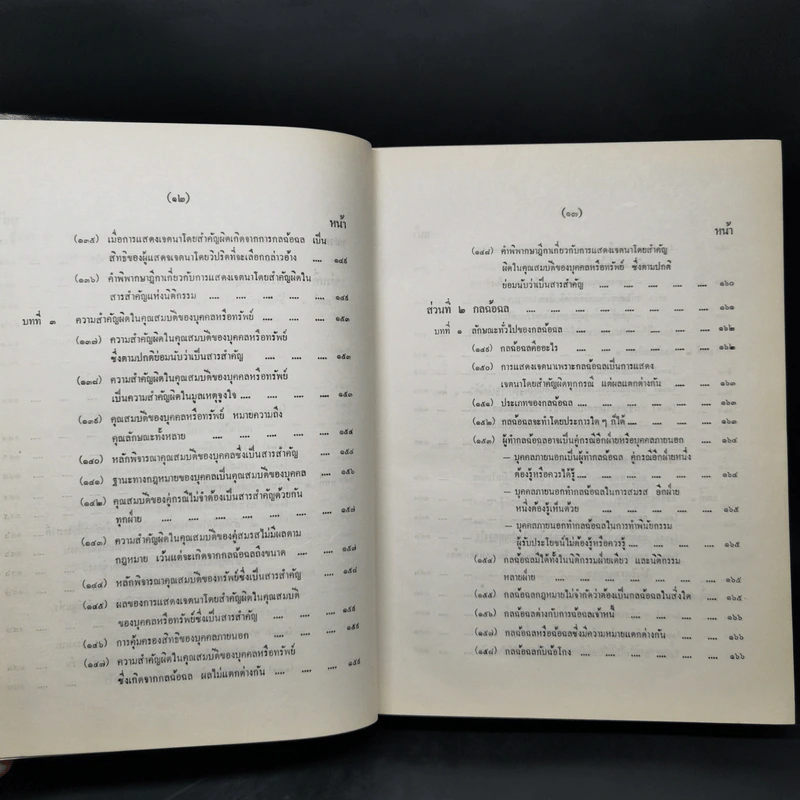 (๑๒)
หน้า
(๑๓๕) เมื่อการแสดงเจตนาโดยสำคัญผิดเกิดจากการกลฉ้อฉล เป็น
สิทธิของผู้แสดงเจตนาโดยวิปริตที่จะเลือกกล่าวอ้าง .... ๑๔๙
(๑๓๖) คำพิพากษาฎีกาเกี่ยวกับการแสดงเจตนาโดยสำคัญผิดใน
สารสำคัญแห่งนิติกรรม .... .... .... .... .... ๑๔๙
บทที่ ๓ ความสำคัญผิดในคุณสมบัติของบุคคลหรือทรัพย์ .... .... ๑๕๓
(๑๓๗) ความสำคัญผิดในคุณสมบัติของบุคคลหรือทรัพย์
ซึ่งตามปกติย่อมนับว่าเป็นสารสำคัญ .... .... .... ๑๕๓
(๑๓๘) ความสำคัญผิดในคุณสมบัติของบุคคลหรือทรัพย์
เป็นความสำคัญผิดในมูลเหตุจูงใจ .... .... .... ๑๕๓
(๑๓๙) คุณสมบัติของบุคคลหรือทรัพย์ หมายความถึง
คุณลักษณะทั้งหลาย .... .... .... .... .... ๑๕๔
(๑๔๐) หลักพิจารณาคุณสมบัติของบุคคลซึ่งเป็นสารสำคัญ .... ๑๕๔
(๑๔๑) ฐานะทางกฎหมายของบุคคลเป็นคุณสมบัติของบุคคล .... ๑๕๖
(๑๔๒) คุณสมบัติของคู่กรณีไม่จำต้องเป็นสารสำคัญด้วยกัน
ทุกฝ่าย .... .... .... .... .... .... ๑๕๗
(๑๔๓) ความสำคัญผิดในคุณสมบัติของคู่สมรสไม่มีผลตาม
กฎหมาย เว้นแต่จะเกิดจากกลฉ้อฉลถึงขนาด .... .... ๑๕๗
(๑๔๔) หลักพิจารณาคุณสมบัติของทรัพย์ซึ่งเป็นสารสำคัญ .... ๑๕๘
(๑๔๕) ผลของการแสดงเจตนาโดยสำคัญผิดในคุณสมบัติ
ของบุคคลหรือทรัพย์ซึ่งเป็นสารสำคัญ .... .... .... ๑๕๙
(๑๔๖) การคุ้มครองสิทธิของบุคคลภายนอก .... .... .... ๑๕๙
(๑๔๗) ความสำคัญผิดในคุณสมบัติของบุคคลหรือทรัพย์
ซึ่งเกิดจากกลฉ้อฉล ผลไม่แตกต่างกัน .... .... .... ๑๕๙
(๑๓)
หน้า
(๑๔๘) คำพิพากษาฎีกาเกี่ยวกับการแสดงเจตนาโดยสำคัญ
ผิดในคุณสมบัติของบุคคลหรือทรัพย์ ซึ่งตามปกติ
ย่อมนับว่าเป็นสารสำคัญ .... .... .... .... ๑๖๐
ส่วนที่ ๒ กลฉ้อฉล .... .... .... .... .... .... .... ๑๖๑
บทที่ ๑ ลักษณะทั่วไปของกลฉ้อฉล .... .... .... .... .... ๑๖๒
(๑๔๙) กลฉ้อฉลคืออะไร .... .... .... .... .... ๑๖๒
(๑๕๐) การแสดงเจตนาเพราะกลฉ้อฉลเป็นการแสดง
เจตนาโดยสำคัญผิดทุกกรณี แต่ผลแตกต่างกัน .... .... ๑๖๓
(๑๕๑) ประเภทของกลฉ้อฉล .... .... .... .... .... ๑๖๓
(๑๕๒) กลฉ้อฉลจะทำโดยประการใด ๆ ก็ได้ .... .... .... ๑๖๓
(๑๕๓) ผู้ทำกลฉ้อฉลอาจเป็นคู่กรณีอีกฝ่ายหรือบุคคลภายนอก .... ๑๖๔
— บุคคลภายนอกเป็นผู้ทำกลฉ้อฉล คู่กรณีอีกฝ่ายหนึ่ง
ต้องรู้หรือควรได้รู้ .... .... .... .... .... ๑๖๔
— บุคคลภายนอกทำกลฉ้อฉลในการสมรส อีกฝ่าย
หนึ่งต้องรู้เห็นด้วย .... .... .... .... ๑๖๕
— บุคคลภายนอกทำกลฉ้อฉลในการทำพินัยกรรม
ผู้รับประโยชน์ไม่ต้องรู้หรือควรรู้ .... .... .... ๑๖๕
(๑๕๔) กลฉ้อฉลมีได้ทั้งในนิติกรรมฝ่ายเดียว และนิติกรรม
หลายฝ่าย .... .... .... .... .... .... ๑๖๕
(๑๕๕) กลฉ้อฉลกฎหมายไม่จำกัดว่าต้องเป็นกลฉ้อฉลในสิ่งใด .... ๑๖๕
(๑๕๖) กลฉ้อฉลต่างกับการฉ้อฉลเจ้าหนี้ .... .... .... .... ๑๖๖
(๑๕๗) กลฉ้อฉลหรือฉ้อฉลซึ่งมีความหมายแตกต่างกัน .... .... ๑๖๖
(๑๕๘) กลฉ้อฉลกับฉ้อโกง .... .... .... .... .... .... ๑๖๖